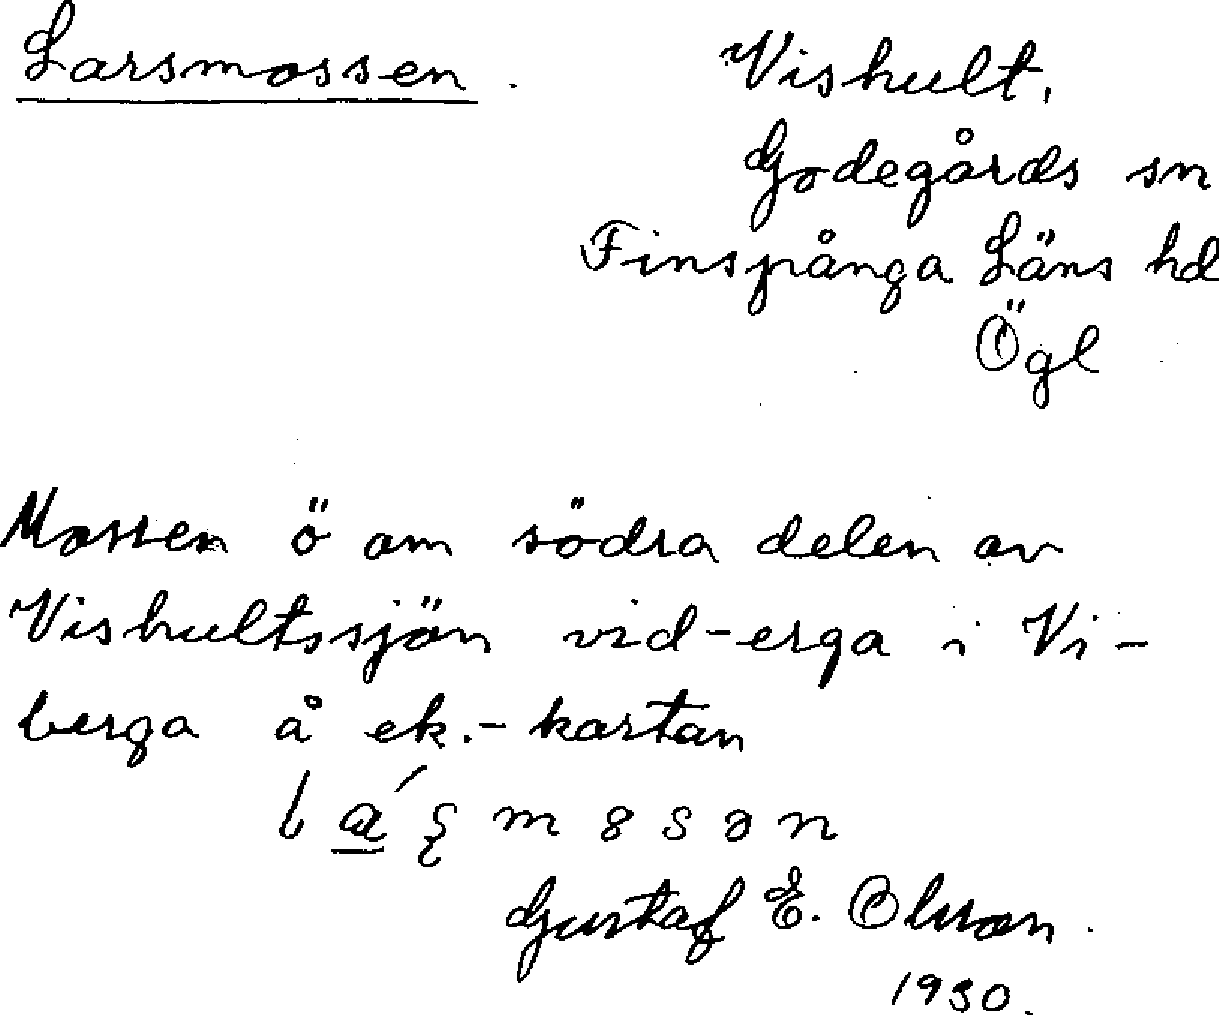 Larsmossen.
Vishult,
Godegårds sn
Finspånga Läns hd
Ögl
Mossen ö om södra delen av
Vishultssjön vid -erga i Vi-
berga å ek.-kartan
Gustaf E. Olsson.
1930.